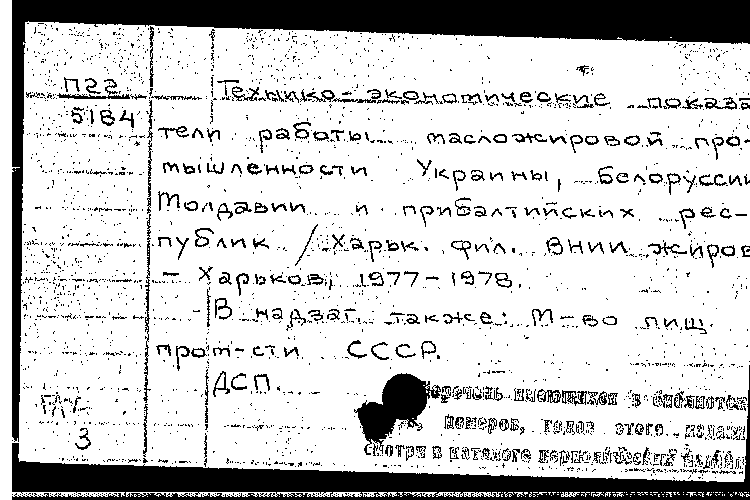 П22
5184
Технико-экономические показа
тели работы масложировой про-
мышленности Украины, Белоруссии
Молдавии и прибалтийских рес-
публик / Харьк. фил. ВНИИ жиров
- Харьков, 1977-1978.
В надзаг. также: М-во пищ.
пром-сти СССР.
ДСП.
Перечень имеющихся в библиотек
номеров, годов этого издани
смотри в каталоге периодических
3